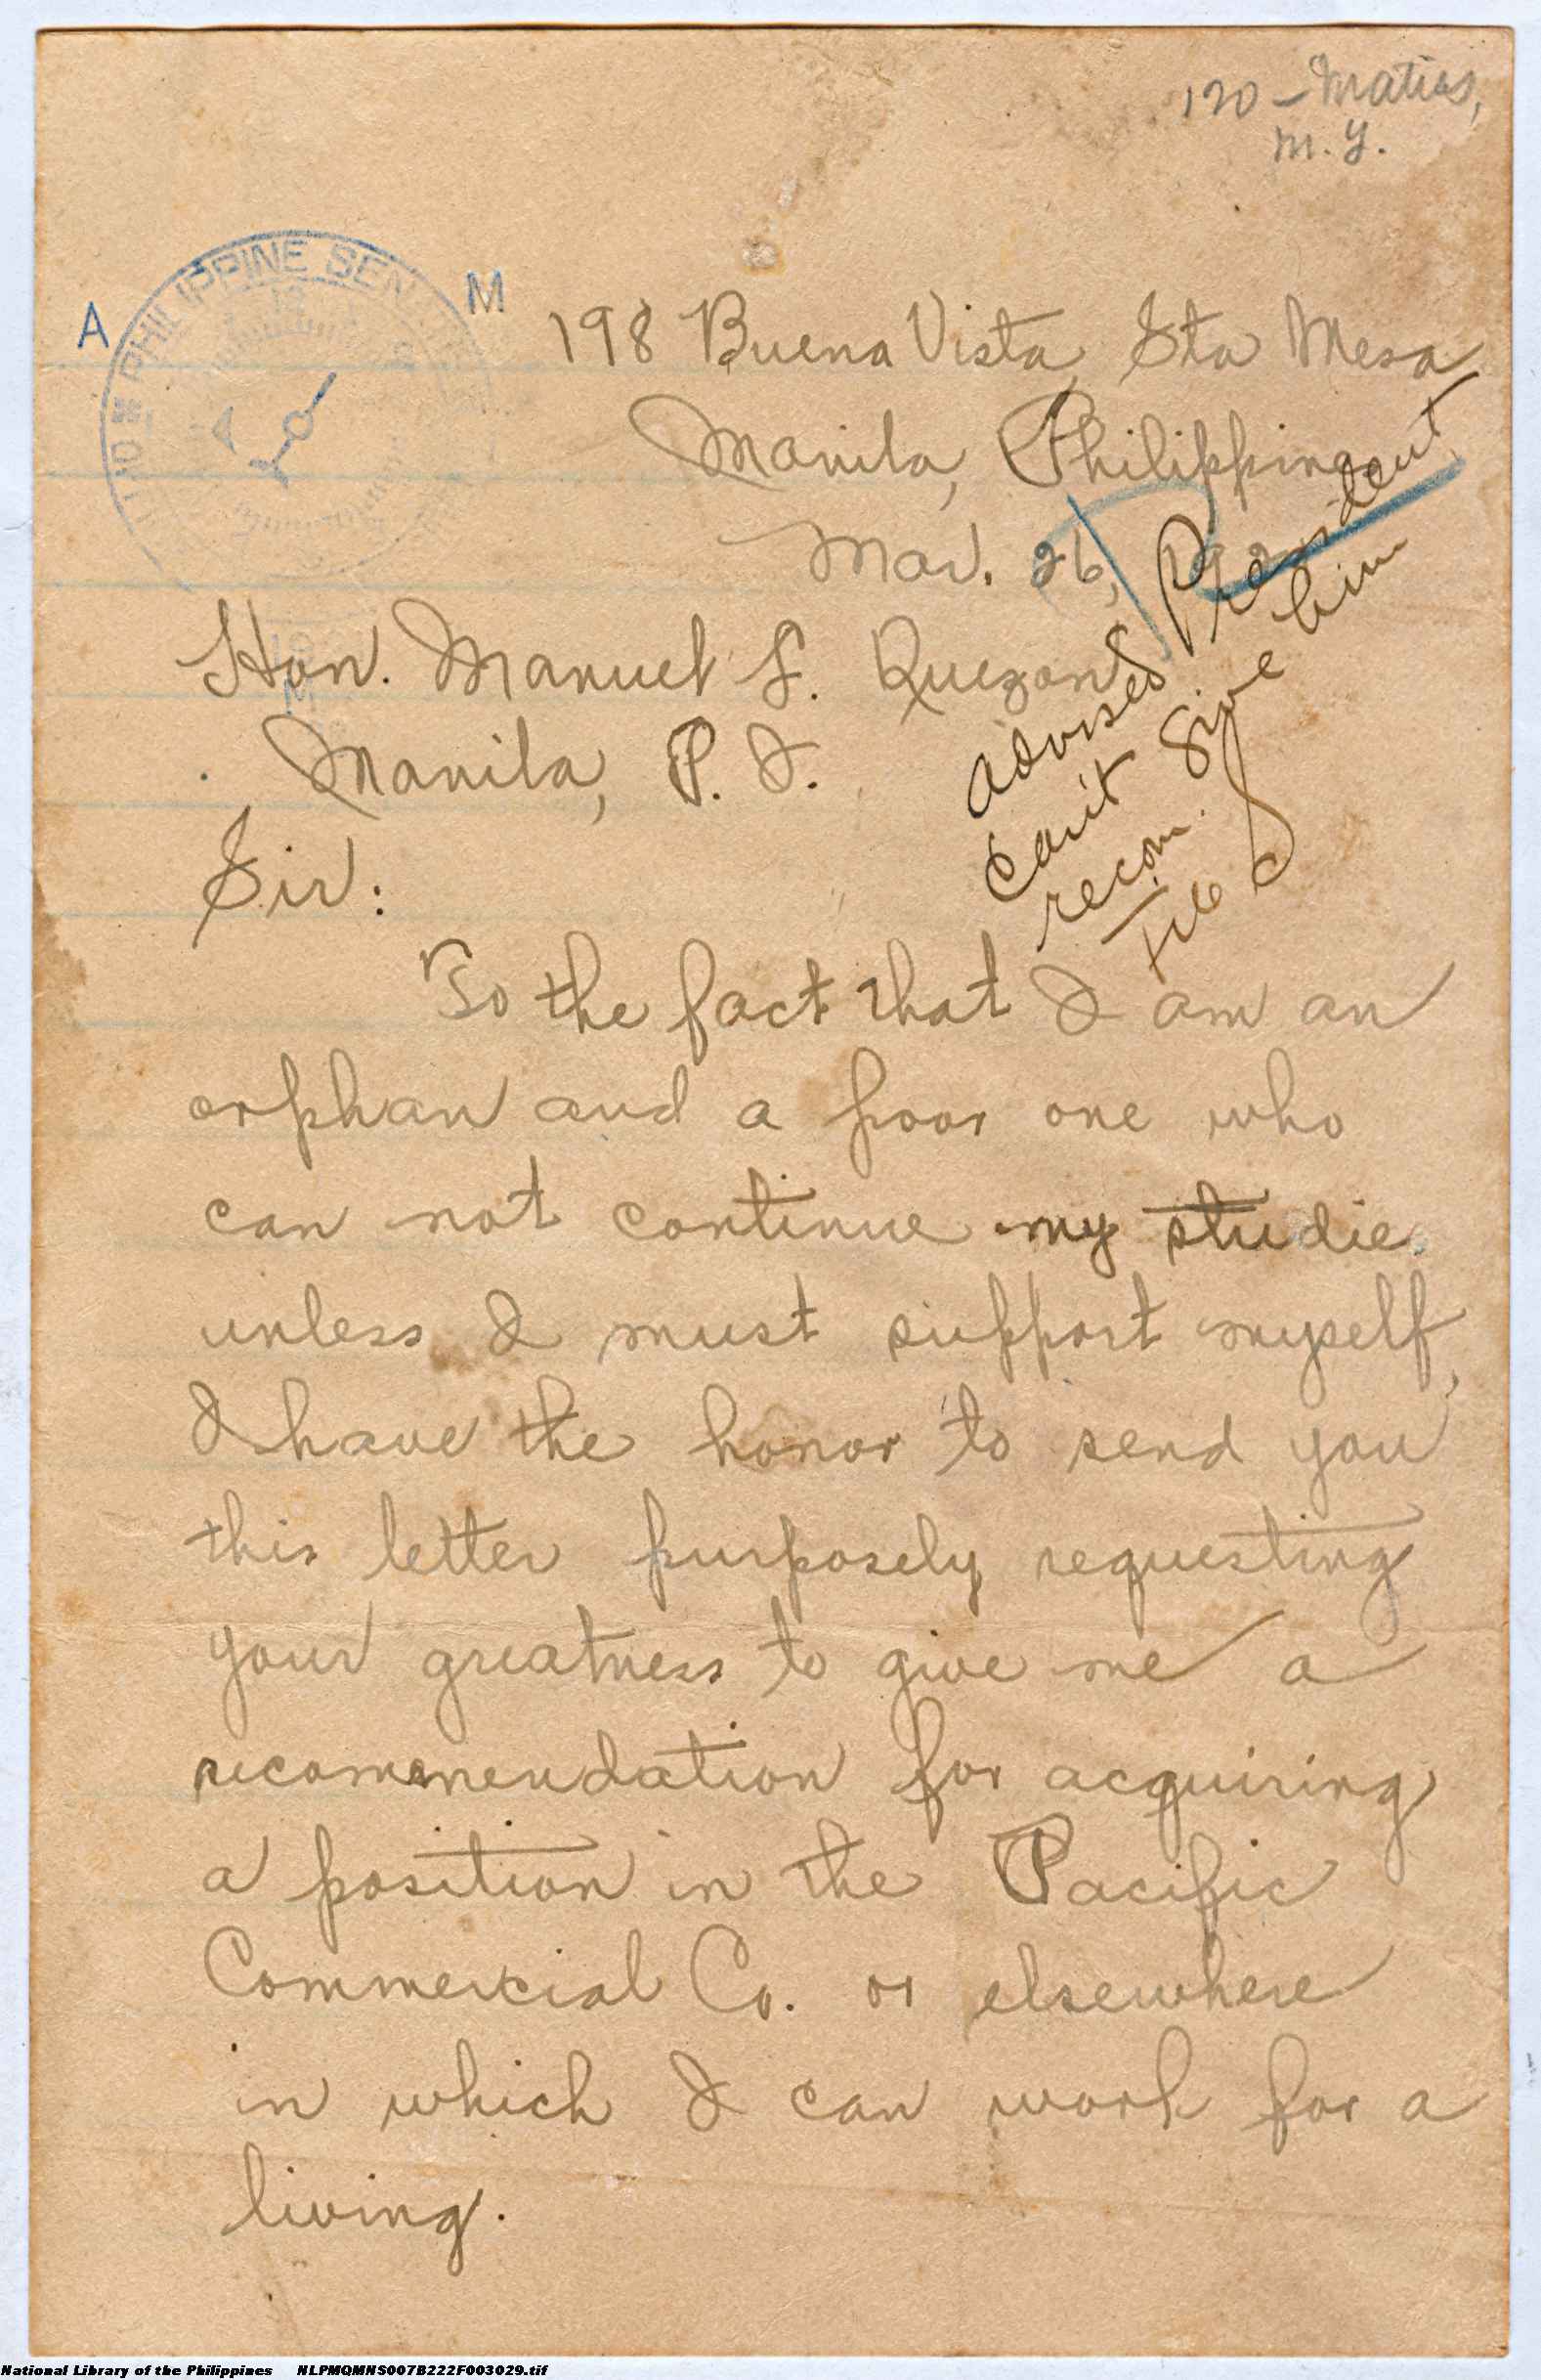 120 - Matias,
M. Y.
PHILIPPINE SENATE
A M
198 Buena Vista, Sta Mesa
Manila, Philippines
Mar. 26, 192
Hon. Manuel L. Quezon
Manila, P. I.
Advised President
can't give him
recom.
File
Sir:
To the fact that I am an
orphan and a poor one who
can not continue my studie
unless I must support myself,
I have the honor to send you
this letter purposely requesting
your greatness to give me a
recommendation for acquiring
a position in the Pacific
Commercial Co. or elsewhere
in which I can work for a
living.
National Library of the Philippines NLPMQMNS007B222F003029.tif